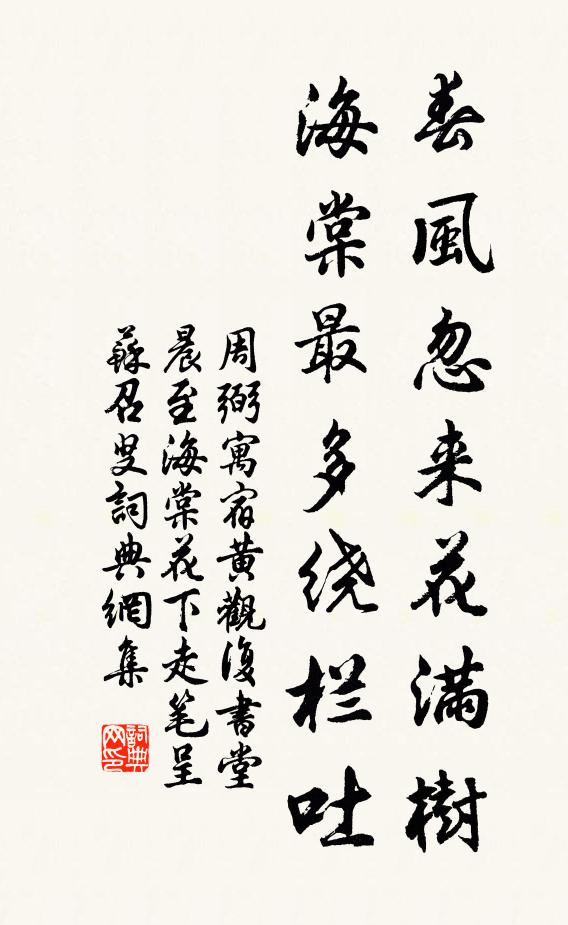 春風忽来花满樹
海棠最多绕栏吐
周弼寓宿黄觀復書堂
晨至海棠花下走笔呈
蘇召叟詞典網集
詞典网印